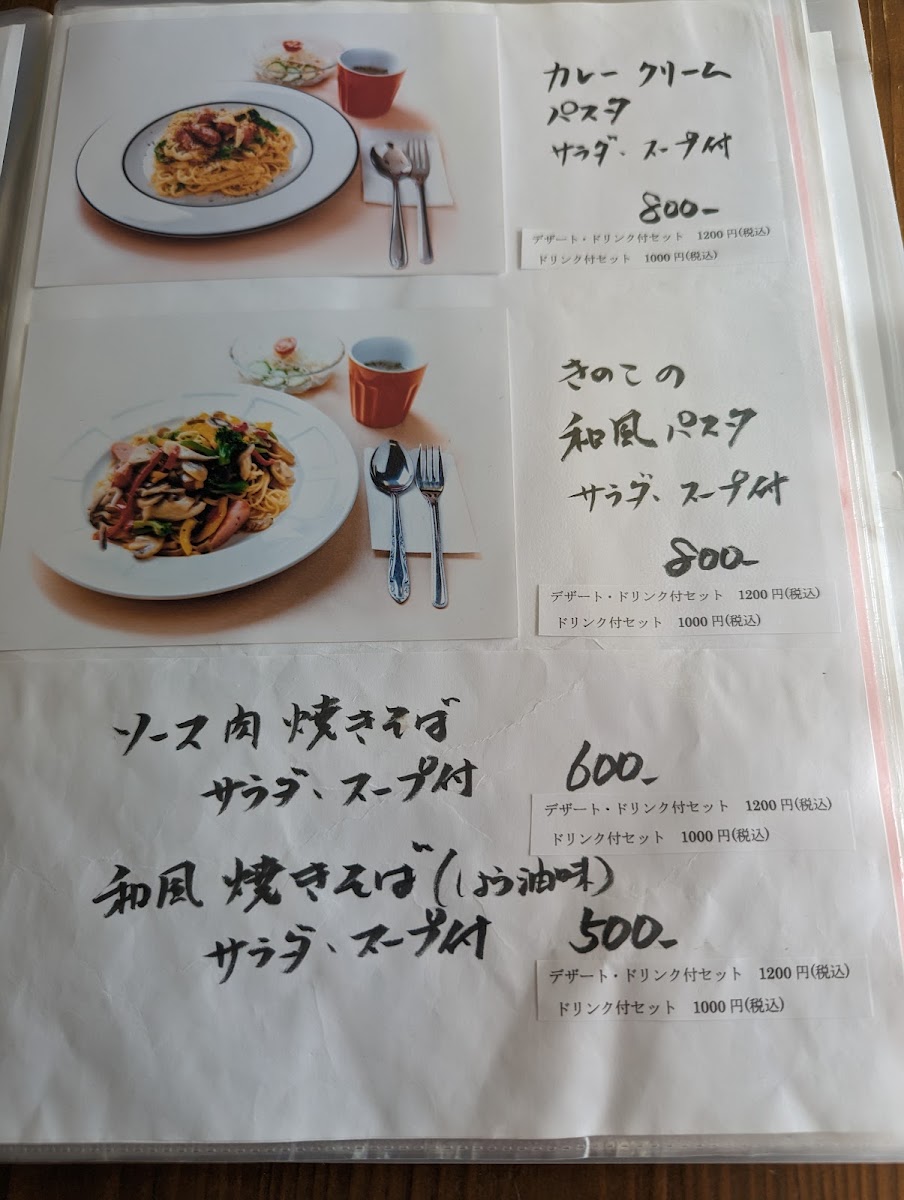 カレー クリーム
パスタ
サラダ、スープ付
800-
デザート・ドリンク付セット 1200円(税込)
ドリンク付セット 1000円(税込)
きのこの
和風パスタ
サラダ、スープ付
800-
デザート・ドリンク付セット 1200円(税込)
ドリンク付セット 1000円(税込)
ソース肉 焼きそば
サラダ、スープ付 600-
デザート・ドリンク付セット 1200円(税込)
ドリンク付セット 1000円(税込)
和風 焼きそば(しょう油味)
サラダ、スープ付 500-
デザート・ドリンク付セット 1200円(税込)
ドリンク付セット 1000円(税込)